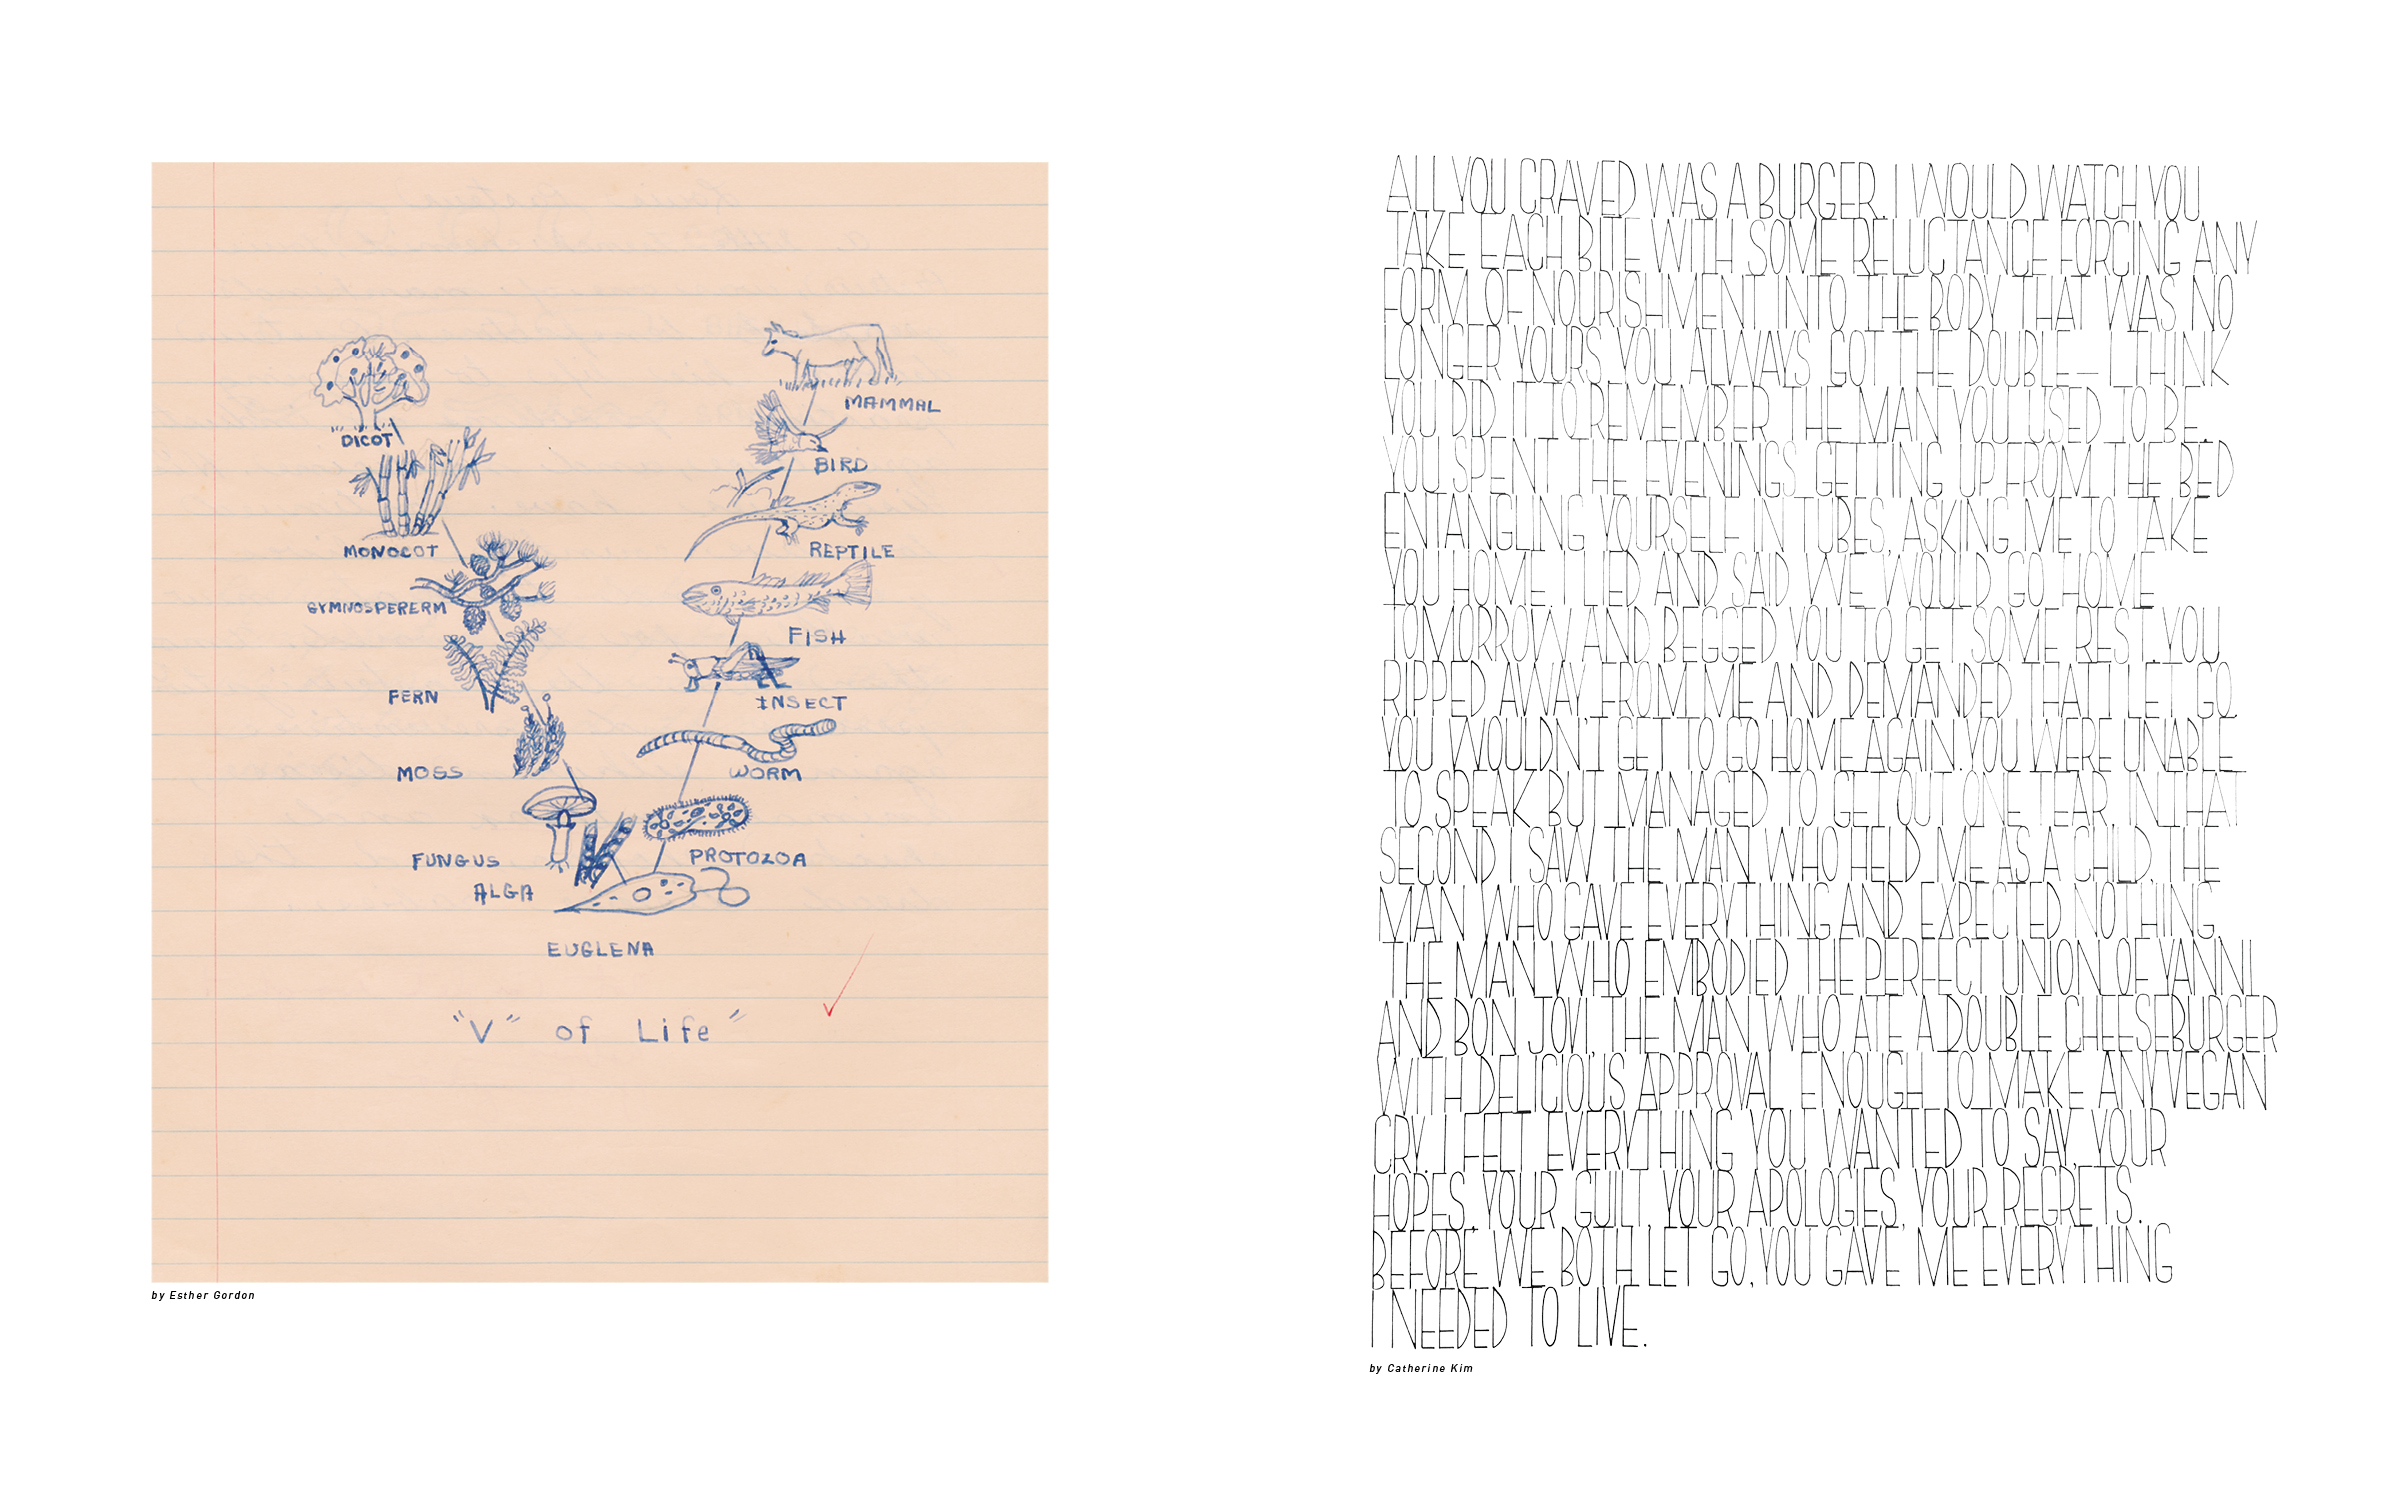 MAMMAL
DICOT
BIRD
MONOCOT
REPTILE
GYMNOSPERERM
FISH
FERN
INSECT
MOSS
WORM
FUNGUS
PROTOZOA
ALGA
EUGLENA
"V" of Life"
by Esther Gordon
ALL YOU CRAVED WAS A BURGER. I WOULD WATCH YOU
TAKE EACH BITE WITH SOME RELUCTANCE FORCING ANY
FORM OF NOURISHMENT INTO THE BODY THAT WAS NO
LONGER YOURS. YOU ALWAYS GOT THE DOUBLE – I THINK
YOU DID IT TO REMEMBER THE MAN YOU USED TO BE.
YOU SPENT THE EVENINGS GETTING UP FROM THE BED
ENTANGLING YOURSELF IN TUBES, ASKING ME TO TAKE
YOU HOME. I LIED AND SAID WE WOULD GO HOME
TOMORROW AND BEGGED YOU TO GET SOME REST. YOU
RIPPED AWAY FROM ME AND DEMANDED THAT I LET GO.
YOU WOULDN'T GET TO GO HOME AGAIN. YOU WERE UNABLE
TO SPEAK BUT MANAGED TO GET OUT ONE TEAR. IN THAT
SECOND I SAW THE MAN WHO HELD ME AS A CHILD, THE
MAN WHO GAVE EVERYTHING AND EXPECTED NOTHING,
THE MAN WHO EMBODIED THE PERFECT UNION OF YANNI
AND BON JOVI, THE MAN WHO ATE A DOUBLE CHEESEBURGER
WITH DELICIOUS APPROVAL ENOUGH TO MAKE ANY VEGAN
CRY. I FELT EVERYTHING YOU WANTED TO SAY, YOUR
HOPES, YOUR GUILT, YOUR APOLOGIES, YOUR REGRETS.
BEFORE WE BOTH LET GO, YOU GAVE ME EVERYTHING
I NEEDED TO LIVE.
by Catherine Kim